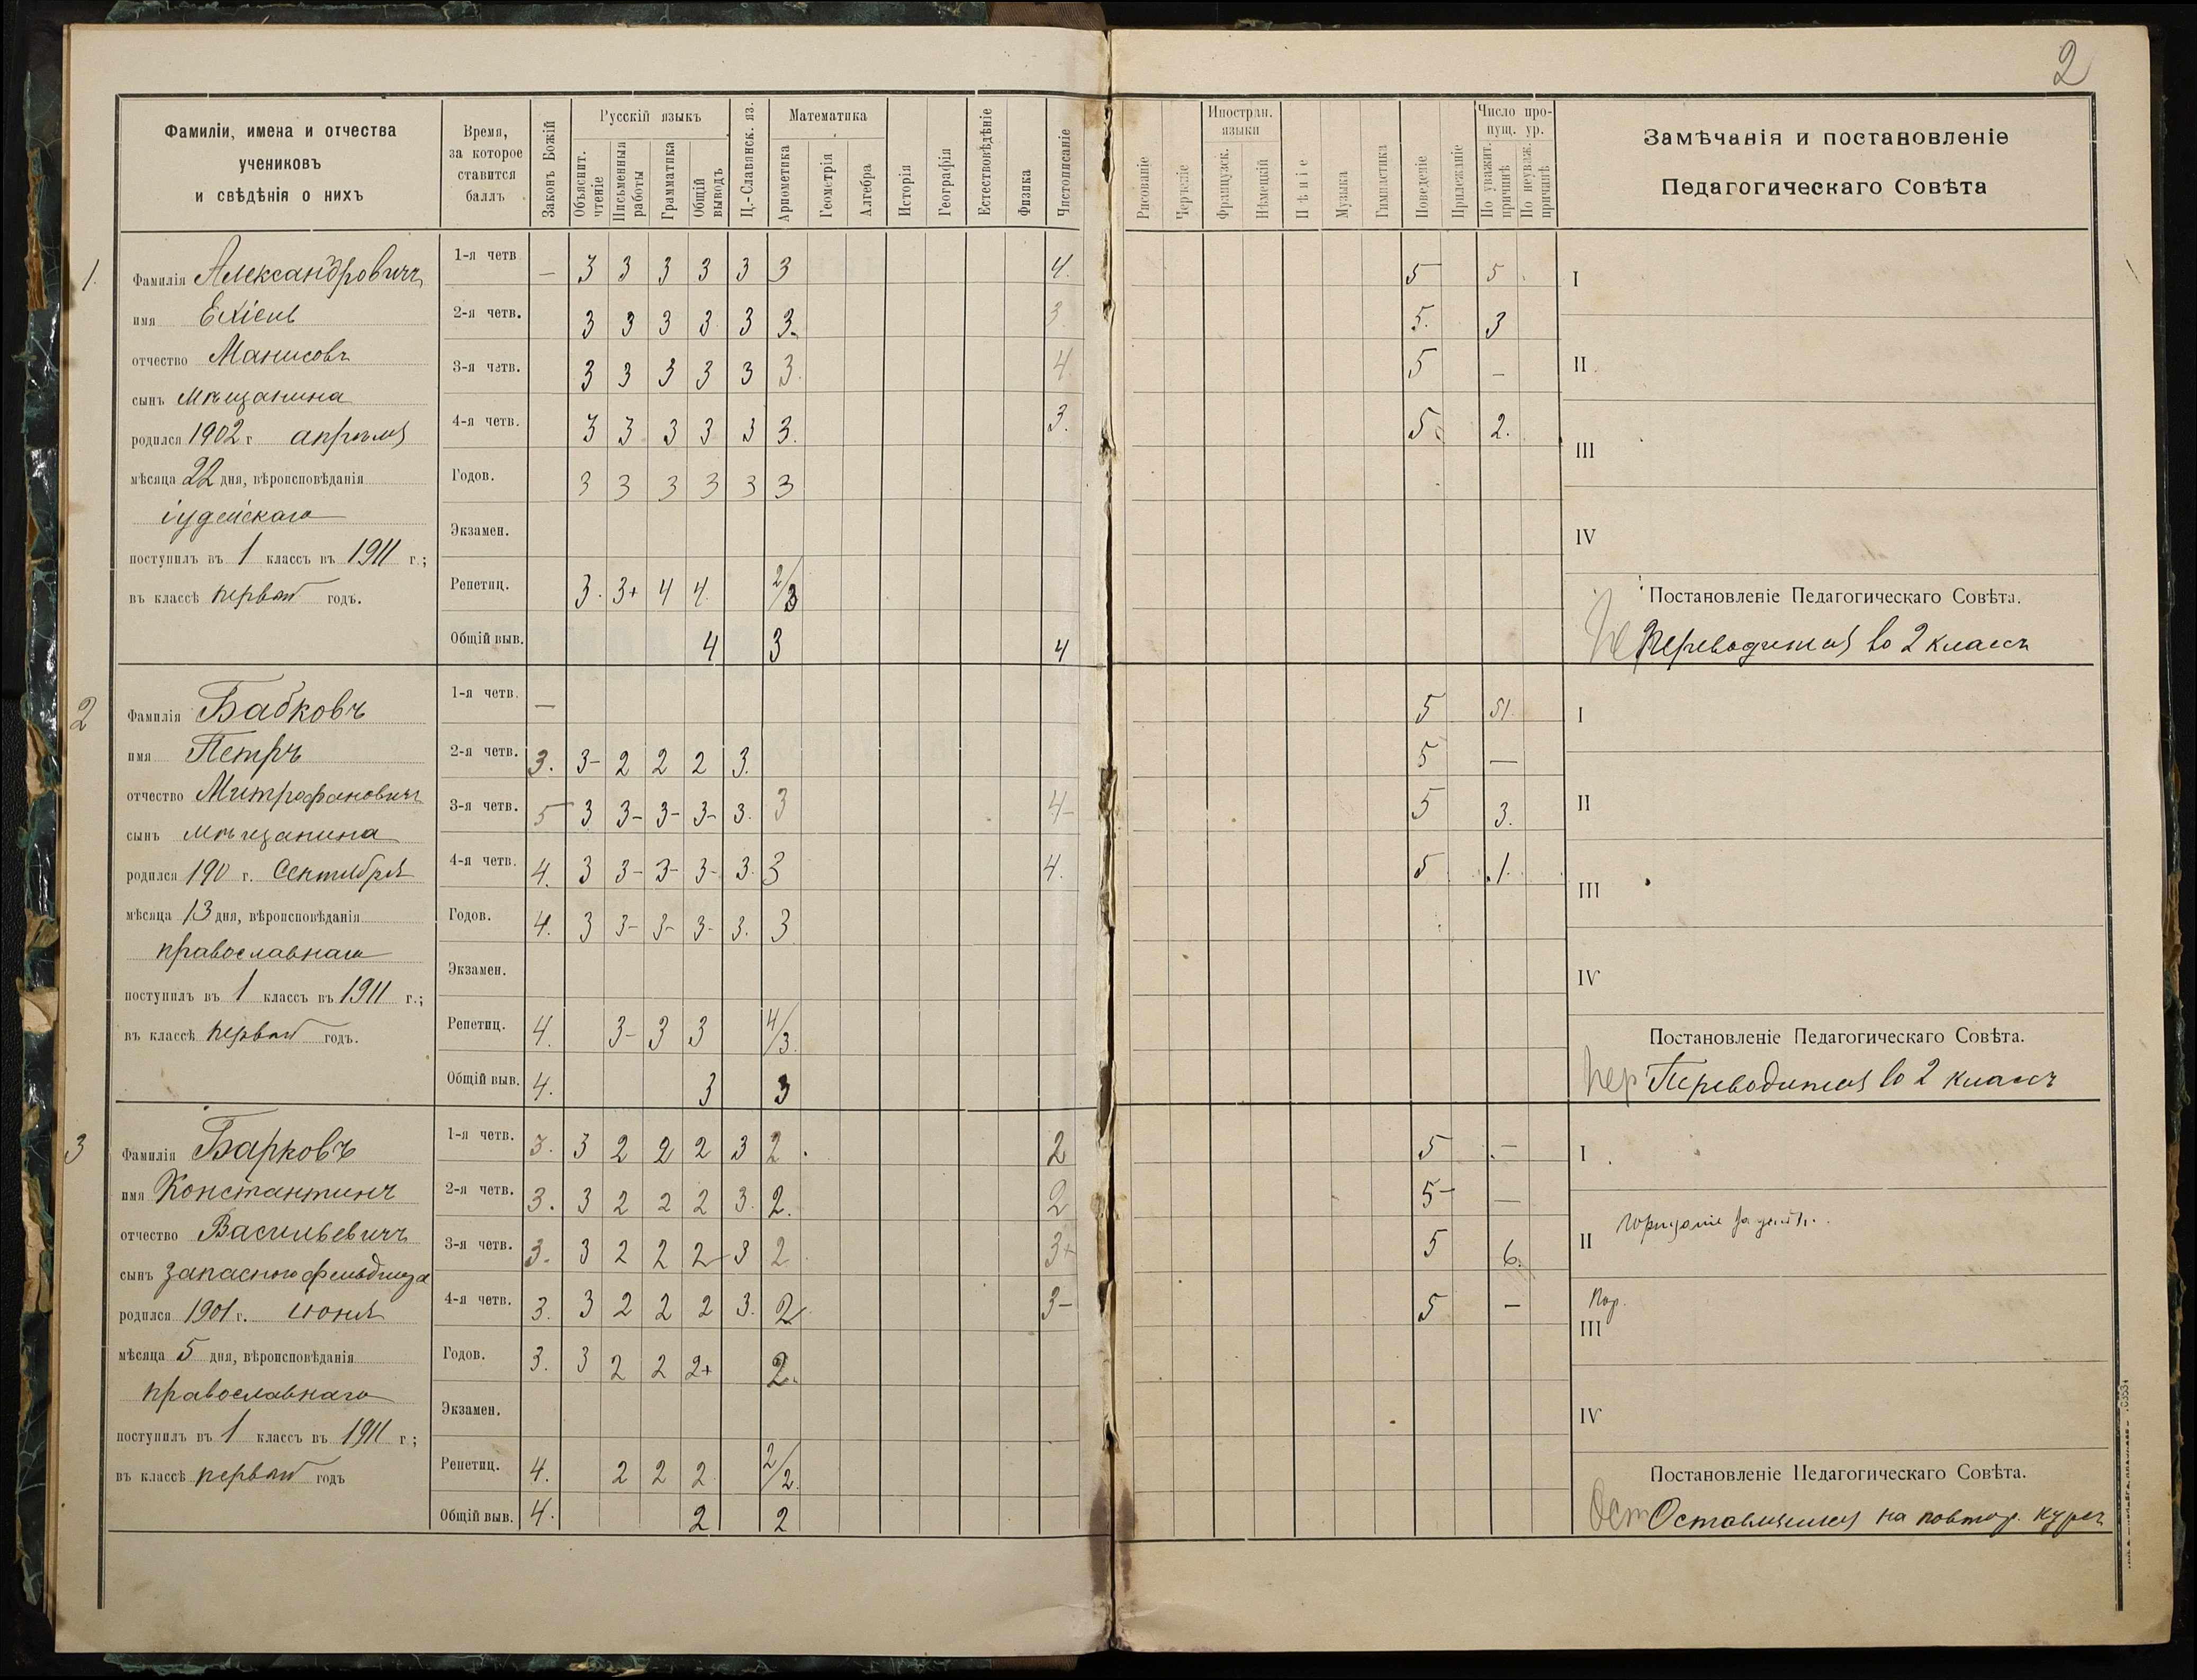 2
Фамиліи, имена и отчества
учениковъ
и свѣдѣнія о нихъ
Время,
за которое
ставится
баллъ
Законъ Божій
Русскій языкъ
Объяснит. чтеніе
Письменныя работы
Грамматика
Общій выводъ
Ц.-Славянск. яз.
Математика
Ариѳметика
Геометрія
Алгебра
Исторія
Географія
Естествовѣдѣніе
Физика
Чистописаніе
Рисованіе
Черченіе
Иностран. языки
Французск.
Нѣмецкій
Пѣніе
Музыка
Гимнастика
Поведеніе
Прилежаніе
Число пропущ. ур.
По уважит. причинѣ
По неуваж. причинѣ
Замѣчанія и постановленіе
Педагогическаго Совѣта
1.
Фамилія Александровичъ
имя Ехіень
отчество Манисовъ
сынъ мѣщанина
родился 1902 г апрѣля
мѣсяца 22 дня, вѣроисповѣданія
іудейскаго
поступилъ въ 1 классъ въ 1911 г.;
въ классѣ первый годъ.
1-я четв — 3 3 3 3 3 3 4. 5 5
2-я четв. 3 3 3 3 3 3. 3. 5. 3
3-я четв. 3 3 3 3 3 3. 4 5 —
4-я четв. 3 3 3 3 3 3. 3. 5. 2.
Годов. 3 3 3 3 3 3
Экзамен.
Репетиц. 3. 3+ 4 4. 2/3
Общій выв. 4 3 4
I
II
III
IV
Постановленіе Педагогическаго Совѣта.
Пе Переводится во 2 классъ
2
Фамилія Бабковъ
имя Петръ
отчество Митрофановичъ
сынъ мѣщанина
родился 190 г. Сентября
мѣсяца 13 дня, вѣроисповѣданія
православнаго
поступилъ въ 1 классъ въ 1911 г.;
въ классѣ первый годъ.
1-я четв. — 5 51.
2-я четв. 3. 3- 2 2 2 3. 5 —
3-я четв. 5 3 3- 3- 3- 3. 3 4- 5 3.
4-я четв. 4. 3 3- 3- 3- 3. 3 4. 5 1.
Годов. 4. 3 3- 3- 3- 3. 3
Экзамен.
Репетиц. 4. 3- 3 3 4/3.
Общій выв. 4. 3 3
I
II
III
IV
Постановленіе Педагогическаго Совѣта.
Пер Переводится во 2 классъ
3
Фамилія Барковъ
имя Константинъ
отчество Васильевичъ
сынъ запасного фельдшера
родился 1901 г. июня
мѣсяца 5 дня, вѣроисповѣданія
православнаго
поступилъ въ 1 классъ въ 1911 г;
въ классѣ первый годъ
1-я четв. 3. 3 2 2 2 3 2. 2 5 —
2-я четв. 3. 3 2 2 2 3. 2. 2 5- —
3-я четв. 3. 3 2 2 2 3 2 3+ 5 6.
4-я четв. 3. 3 2 2 2 3. 2. 3- 5 —
Годов. 3. 3 2 2 2+ 2.
Экзамен.
Репетиц. 4. 2 2 2 2/2.
Общій выв. 4. 2 2
I
II порицаніе за
Пор.
III
IV
Постановленіе Педагогическаго Совѣта.
Ост Оставляется на повтор. курсъ